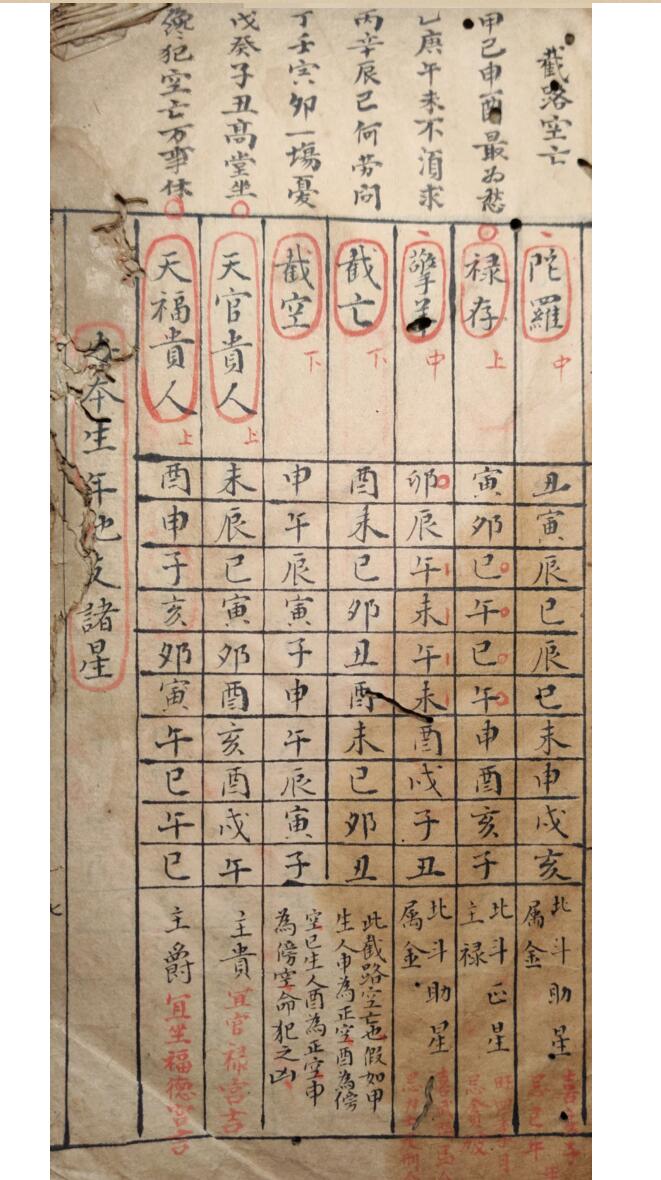 截路空亡
甲己申酉最為愁
乙庚午未不湏求
丙辛辰巳何劳問
丁壬寅卯一塲憂
戊癸子丑高堂坐
犯空亡万事休
陀羅
中
丑
寅
辰
巳
辰
巳
未
申
戌
亥
北斗助星
属金
禄存
上
寅
卯
巳
午
巳
午
申
酉
亥
子
北斗正星
主禄
擎羊
中
卯
辰
午
未
午
未
酉
戌
子
丑
北斗助星
属金
截亡
下
酉
未
巳
卯
丑
酉
未
巳
卯
丑
此截路空亡也假如甲
生人申為正空酉為傍
截空
下
申
午
辰
寅
子
申
午
辰
寅
子
空己生人酉為正空申
為傍空命犯之凶
天官貴人
上
未
辰
巳
寅
卯
酉
亥
酉
戌
午
主貴宜官禄宮吉
天福貴人
上
酉
申
子
亥
卯
寅
午
巳
午
巳
主爵宜坐福德宮吉
本生年地支諸星